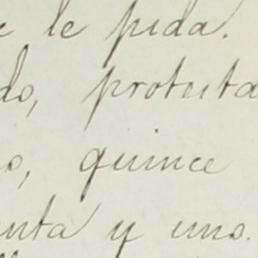 e le pida.
do, protesta
o, quince
enta y uno.